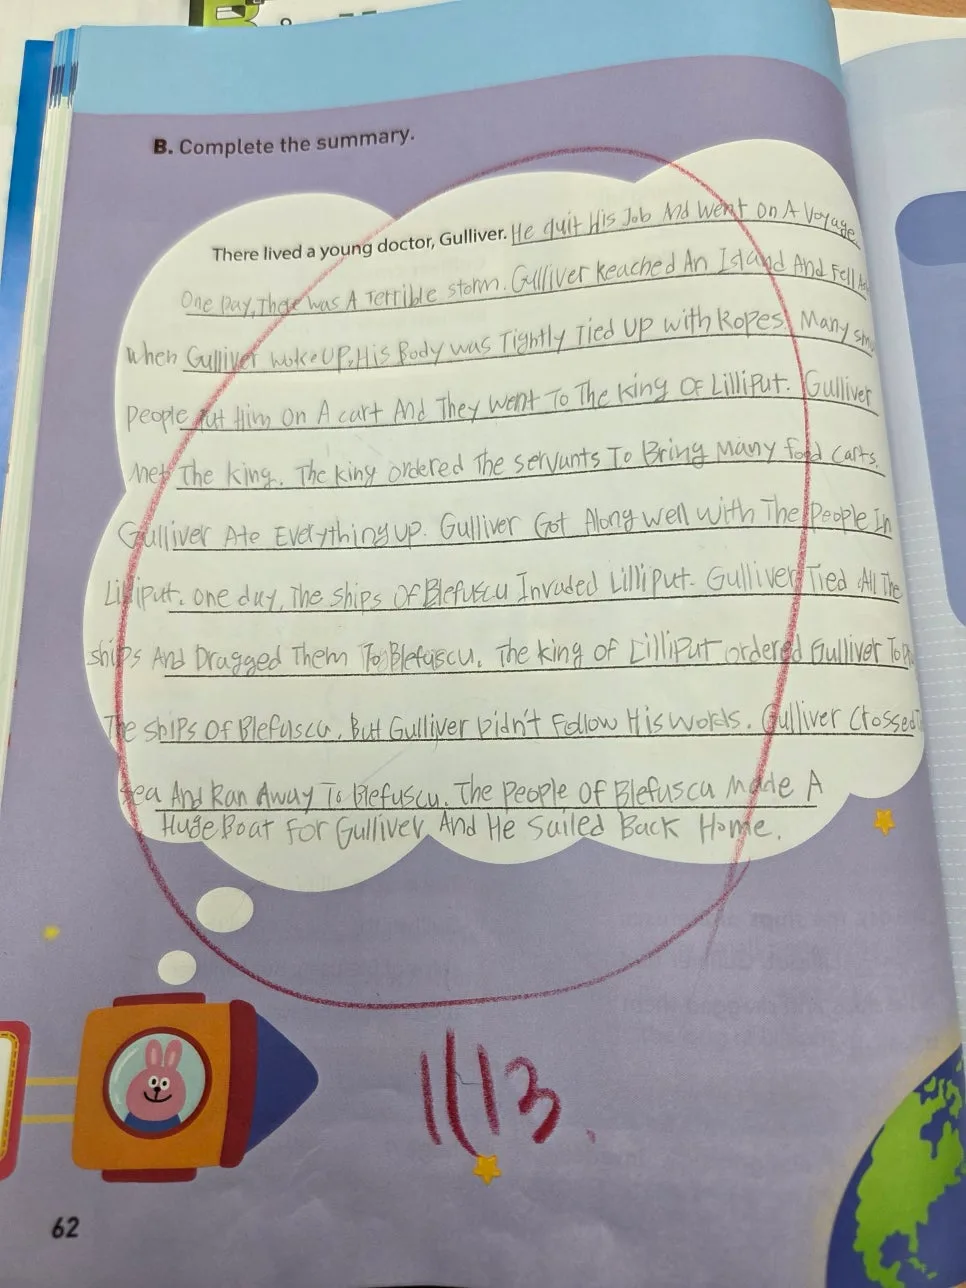 B. Complete the summary.
There lived a young doctor, Gulliver. He quit His Job And Went On A Voyage.
One Day, There was A Terrible storm. Gulliver Reached An Island And Fell
When Gulliver woke UP, His Body was Tightly Tied UP with Ropes. Many
People Put Him On A cart And They Went To The King OF LilliPut. Gulliver
Met The King. The King ordered The servants To Bring Many food carts.
Gulliver Ate Everything up. Gulliver Got Along well with The People In
LilliPut. one day, The ships Of Blefuscu Invaded LilliPut. Gulliver Tied All The
ships And Dragged Them To Blefuscu. The king of LilliPut ordered Gulliver To
The ships Of Blefuscu. But Gulliver Didn't Follow His words. Gulliver Crossed
sea And Ran Away To Blefuscu. The People Of Blefuscu Made A
Huge Boat For Gulliver And He Sailed Back Home.
11/13.
62